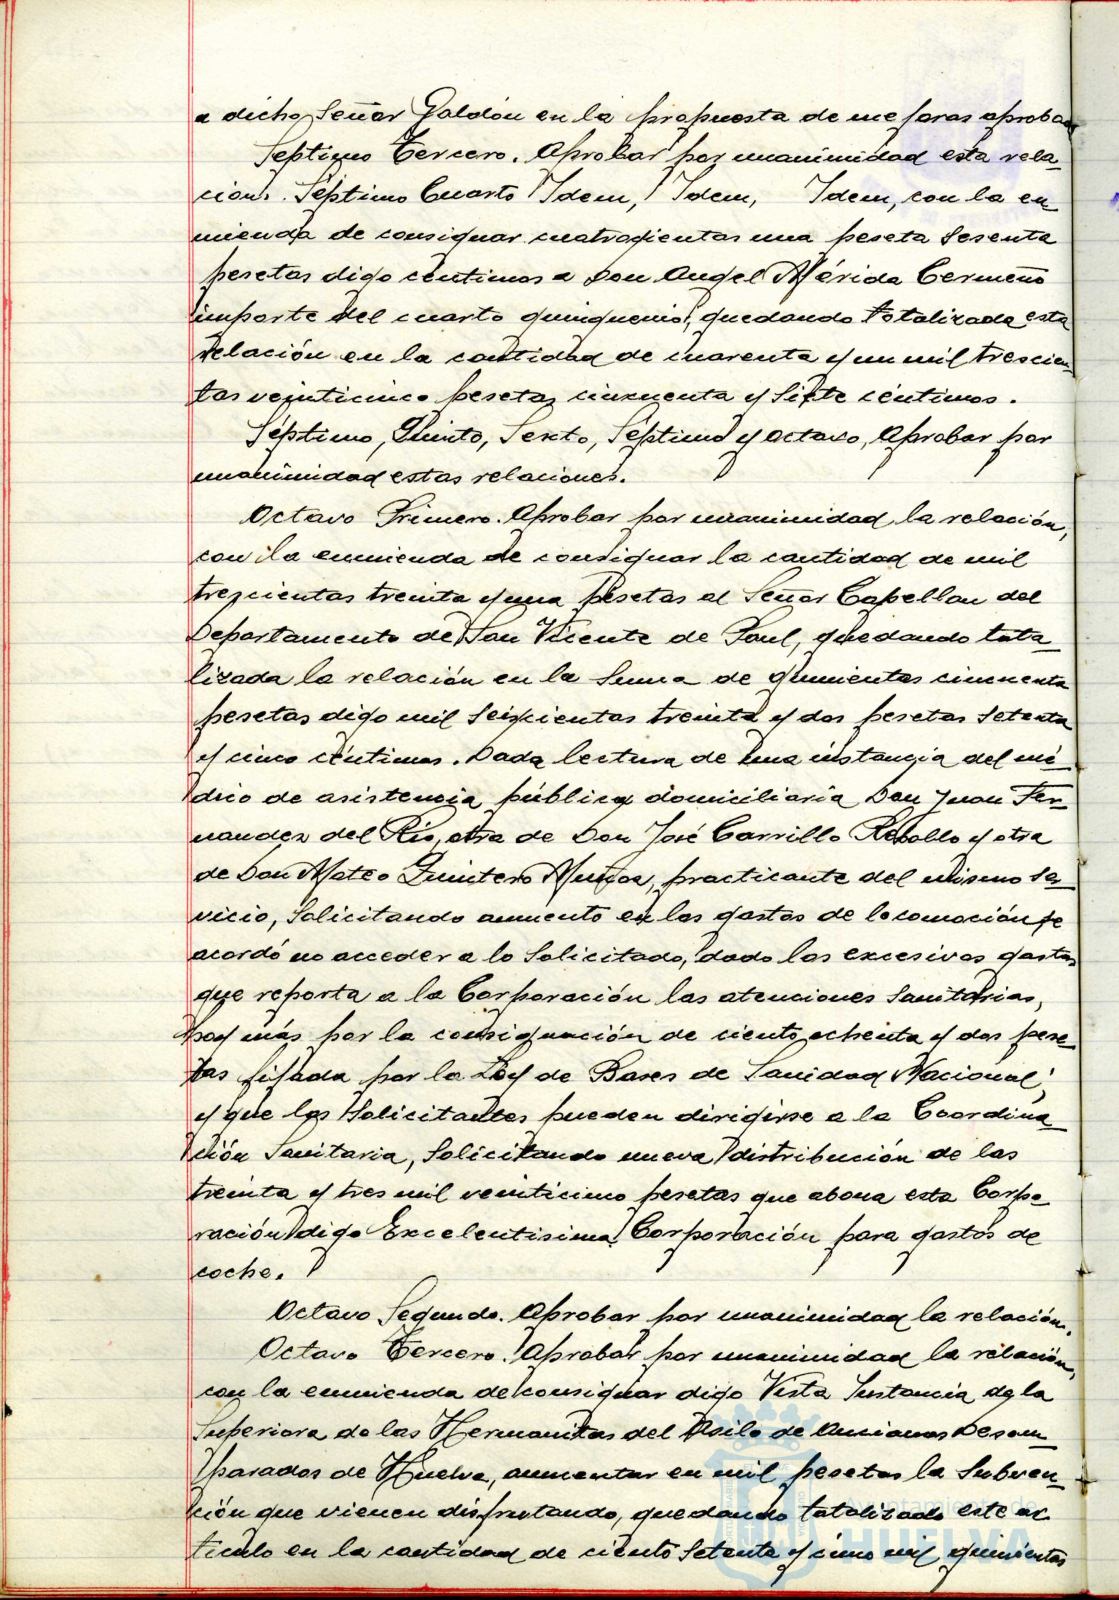 a dicho Señor Galdón en la propuesta de mejoras aprobada
Septimo Tercero. Aprobar por unanimidad esta rela-
ción. Séptimo Cuarto Idem, Idem, Idem, con la en-
mienda de consignar cuatrocientas una peseta sesenta
pesetas digo céntimos a Don Angel Mérida Cermeño
importe del cuarto quinquenio, quedando totalizada esta
relación en la cantidad de cuarenta y un mil trescien-
tas veinticinco pesetas cincuenta y siete céntimos.
Séptimo, Quinto, Sexto, Séptimo y octavo, Aprobar por
unanimidad estas relaciones.
Octavo Primero. Aprobar por unanimidad la relación,
con la enmienda de consignar la cantidad de mil
trescientas treinta y una pesetas al Señor Capellan del
Departamento de San Vicente de Paul, quedando tota-
lizada la relación en la suma de quinientas cincuenta
pesetas digo mil seiscientas treinta y dos pesetas setenta
y cinco céntimos. Dada lectura de una instancia del mé-
dico de asistencia pública domiciliaria Don Juan Fer-
nandez del Rio, otra de Don José Carrillo Rebollo y otra
de Don Mateo Quintero Muñoz, practicante del mismo ser-
vicio, solicitando aumento en los gastos de locomoción se
acordó no acceder a lo solicitado, dado los excesivos gastos
que reporta a la Corporación las atenciones sanitarias,
hoy más por la consignación de ciento ochenta y dos pese-
tas fijada por la Ley de Bases de Sanidad Nacional,
y que los solicitantes pueden dirigirse a la Coordina-
ción Sanitaria, solicitando nueva distribución de las
treinta y tres mil veinticinco pesetas que abona esta Corpo-
ración digo Excelentisima Corporación para gastos de
coche.
Octavo Segundo. Aprobar por unanimidad la relación.
Octavo Tercero. Aprobar por unanimidad la relación,
con la enmienda de consignar digo Vista Instancia de la
Superiora de las Hermanitas del Asilo de Ancianos Desam-
parados de Huelva, aumentar en mil pesetas la Subven-
ción que vienen disfrutando, quedando totalizado este ar-
ticulo en la cantidad de ciento setenta y cinco mil quinientas
Ayuntamiento de
HUELVA